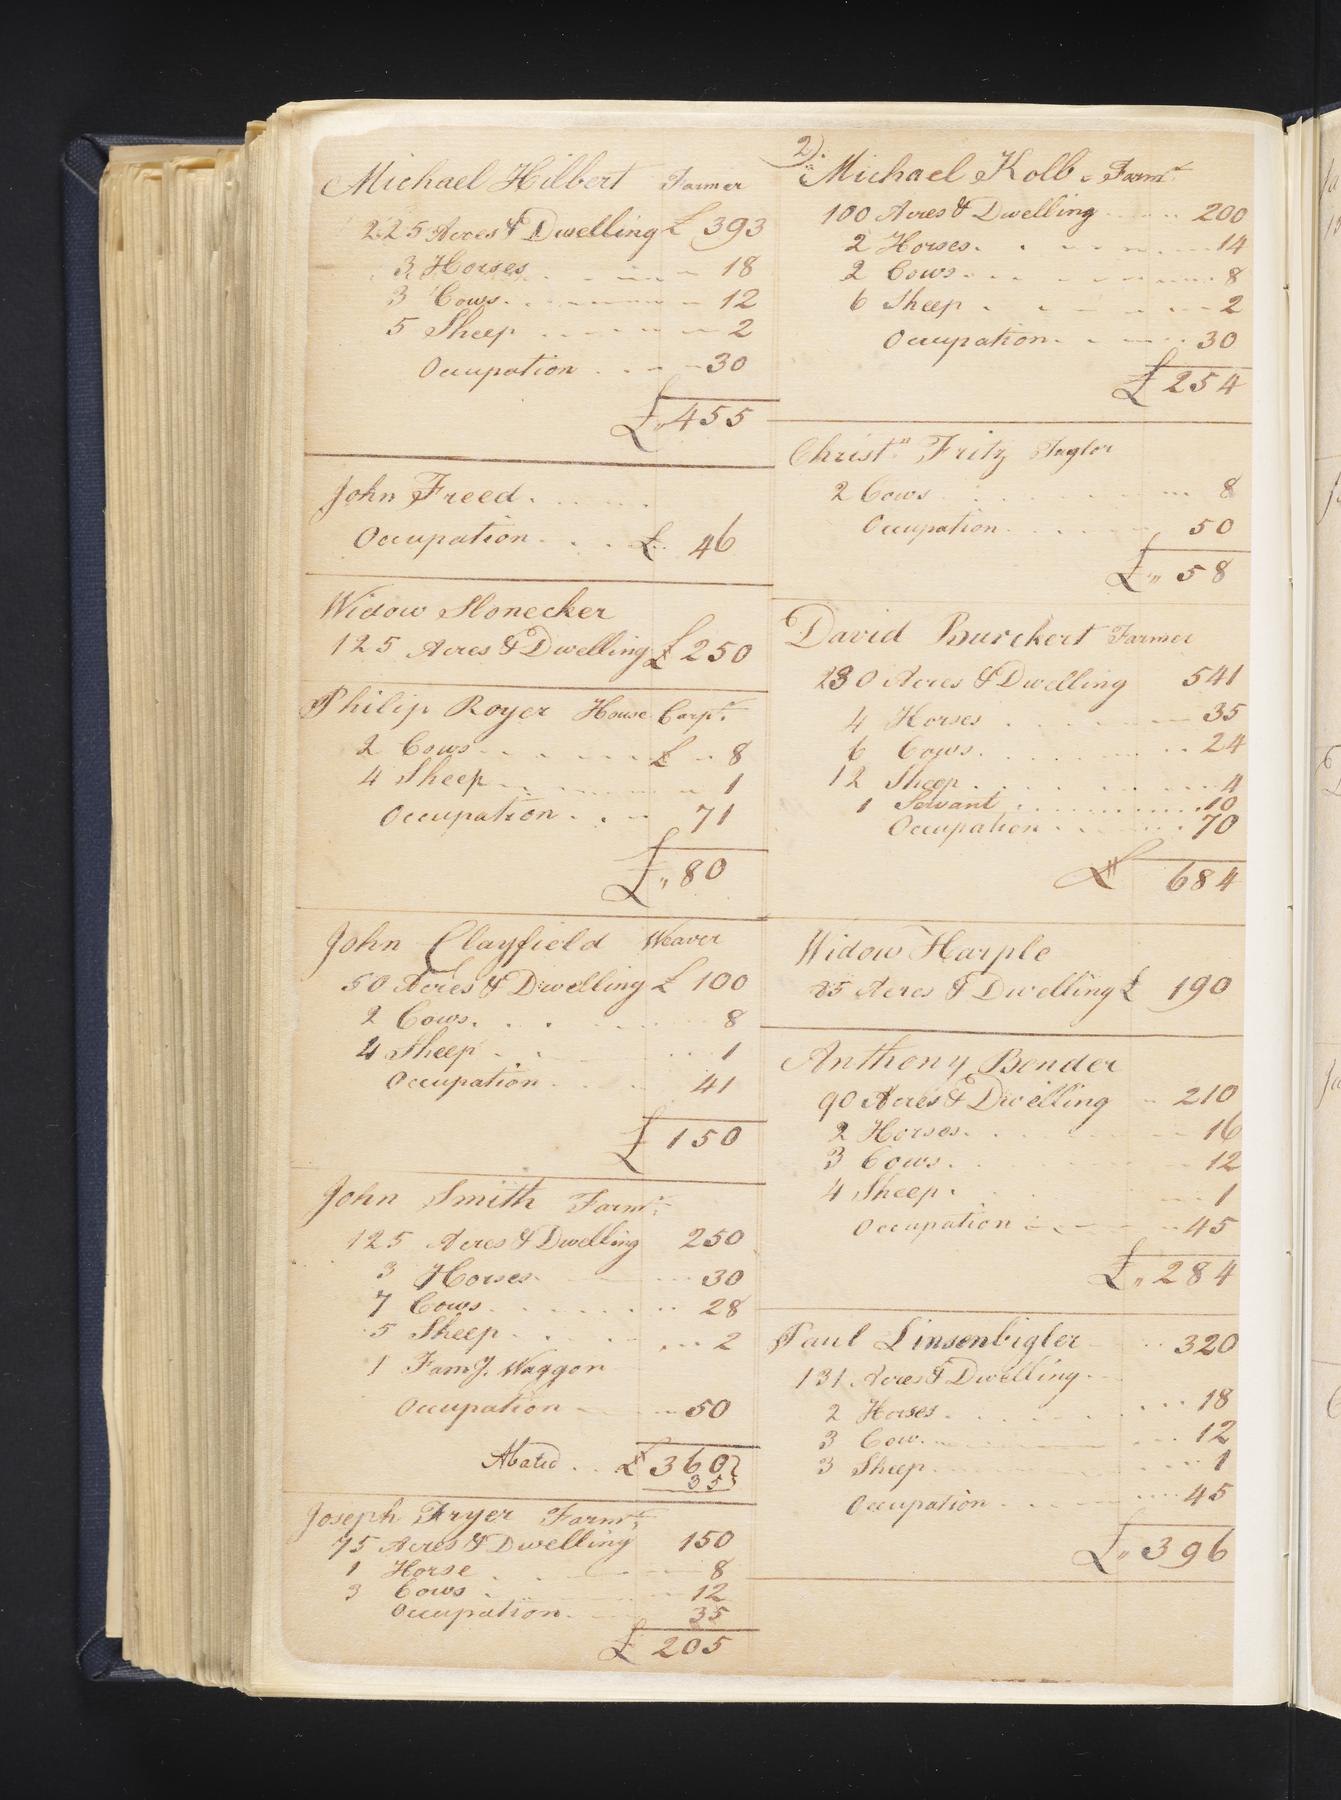 Michael Hilbert Farmer
225 Acres & Dwelling £ 393
3 Horses 18
3 Cows 12
5 Sheep 2
Occupation 30
£ 455
John Freed
Occupation £ 46
Widow Slonecker
125 Acres & Dwelling £ 250
Philip Royer House Carpr.
2 Cows £ 8
4 Sheep 1
Occupation 71
£ 80
John Clayfield Weaver
50 Acres & Dwelling £ 100
2 Cows 8
4 Sheep 1
Occupation 41
£ 150
John Smith Farmr.
125 Acres & Dwelling 250
3 Horses 30
7 Cows 28
5 Sheep 2
1 Famy. Waggon
Occupation 50
Abated £ 360
35
Joseph Fryer Farmr.
75 Acres & Dwelling 150
1 Horse 8
3 Cows 12
Occupation 35
£ 205
2)
Michael Kolb Farmr
100 Acres & Dwelling 200
2 Horses 14
2 Cows 8
6 Sheep 2
Occupation 30
£ 254
Christn Fritz Taylor
2 Cows 8
Occupation 50
£ 58
David Burckert Farmer
230 Acres & Dwelling 541
4 Horses 35
6 Cows 24
12 Sheep 4
1 Servant 10
Occupation 70
£ 684
Widow Harple
Acres & Dwelling £ 190
Anthony Bender
90 Acres & Dwelling 210
2 Horses 16
3 Cows 12
4 Sheep 1
Occupation 45
£ 284
Paul Linsenbigler 320
131 Acres & Dwelling
2 Horses 18
3 Cow 12
3 Sheep 1
Occupation 45
£ 396